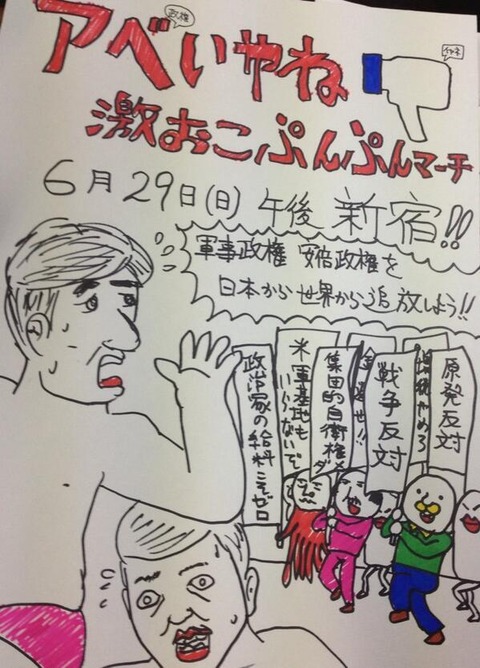 政権
アベいやね
イイネ
激おこぷんぷんマーチ
6月29日(日) 午後 新宿!!
軍事政権 安倍政権を
日本から世界から追放しよう!!
原発反対
戦争反対
集団的自衛権ダメ
米軍基地もいらないで
政治家の給料こそゼロ